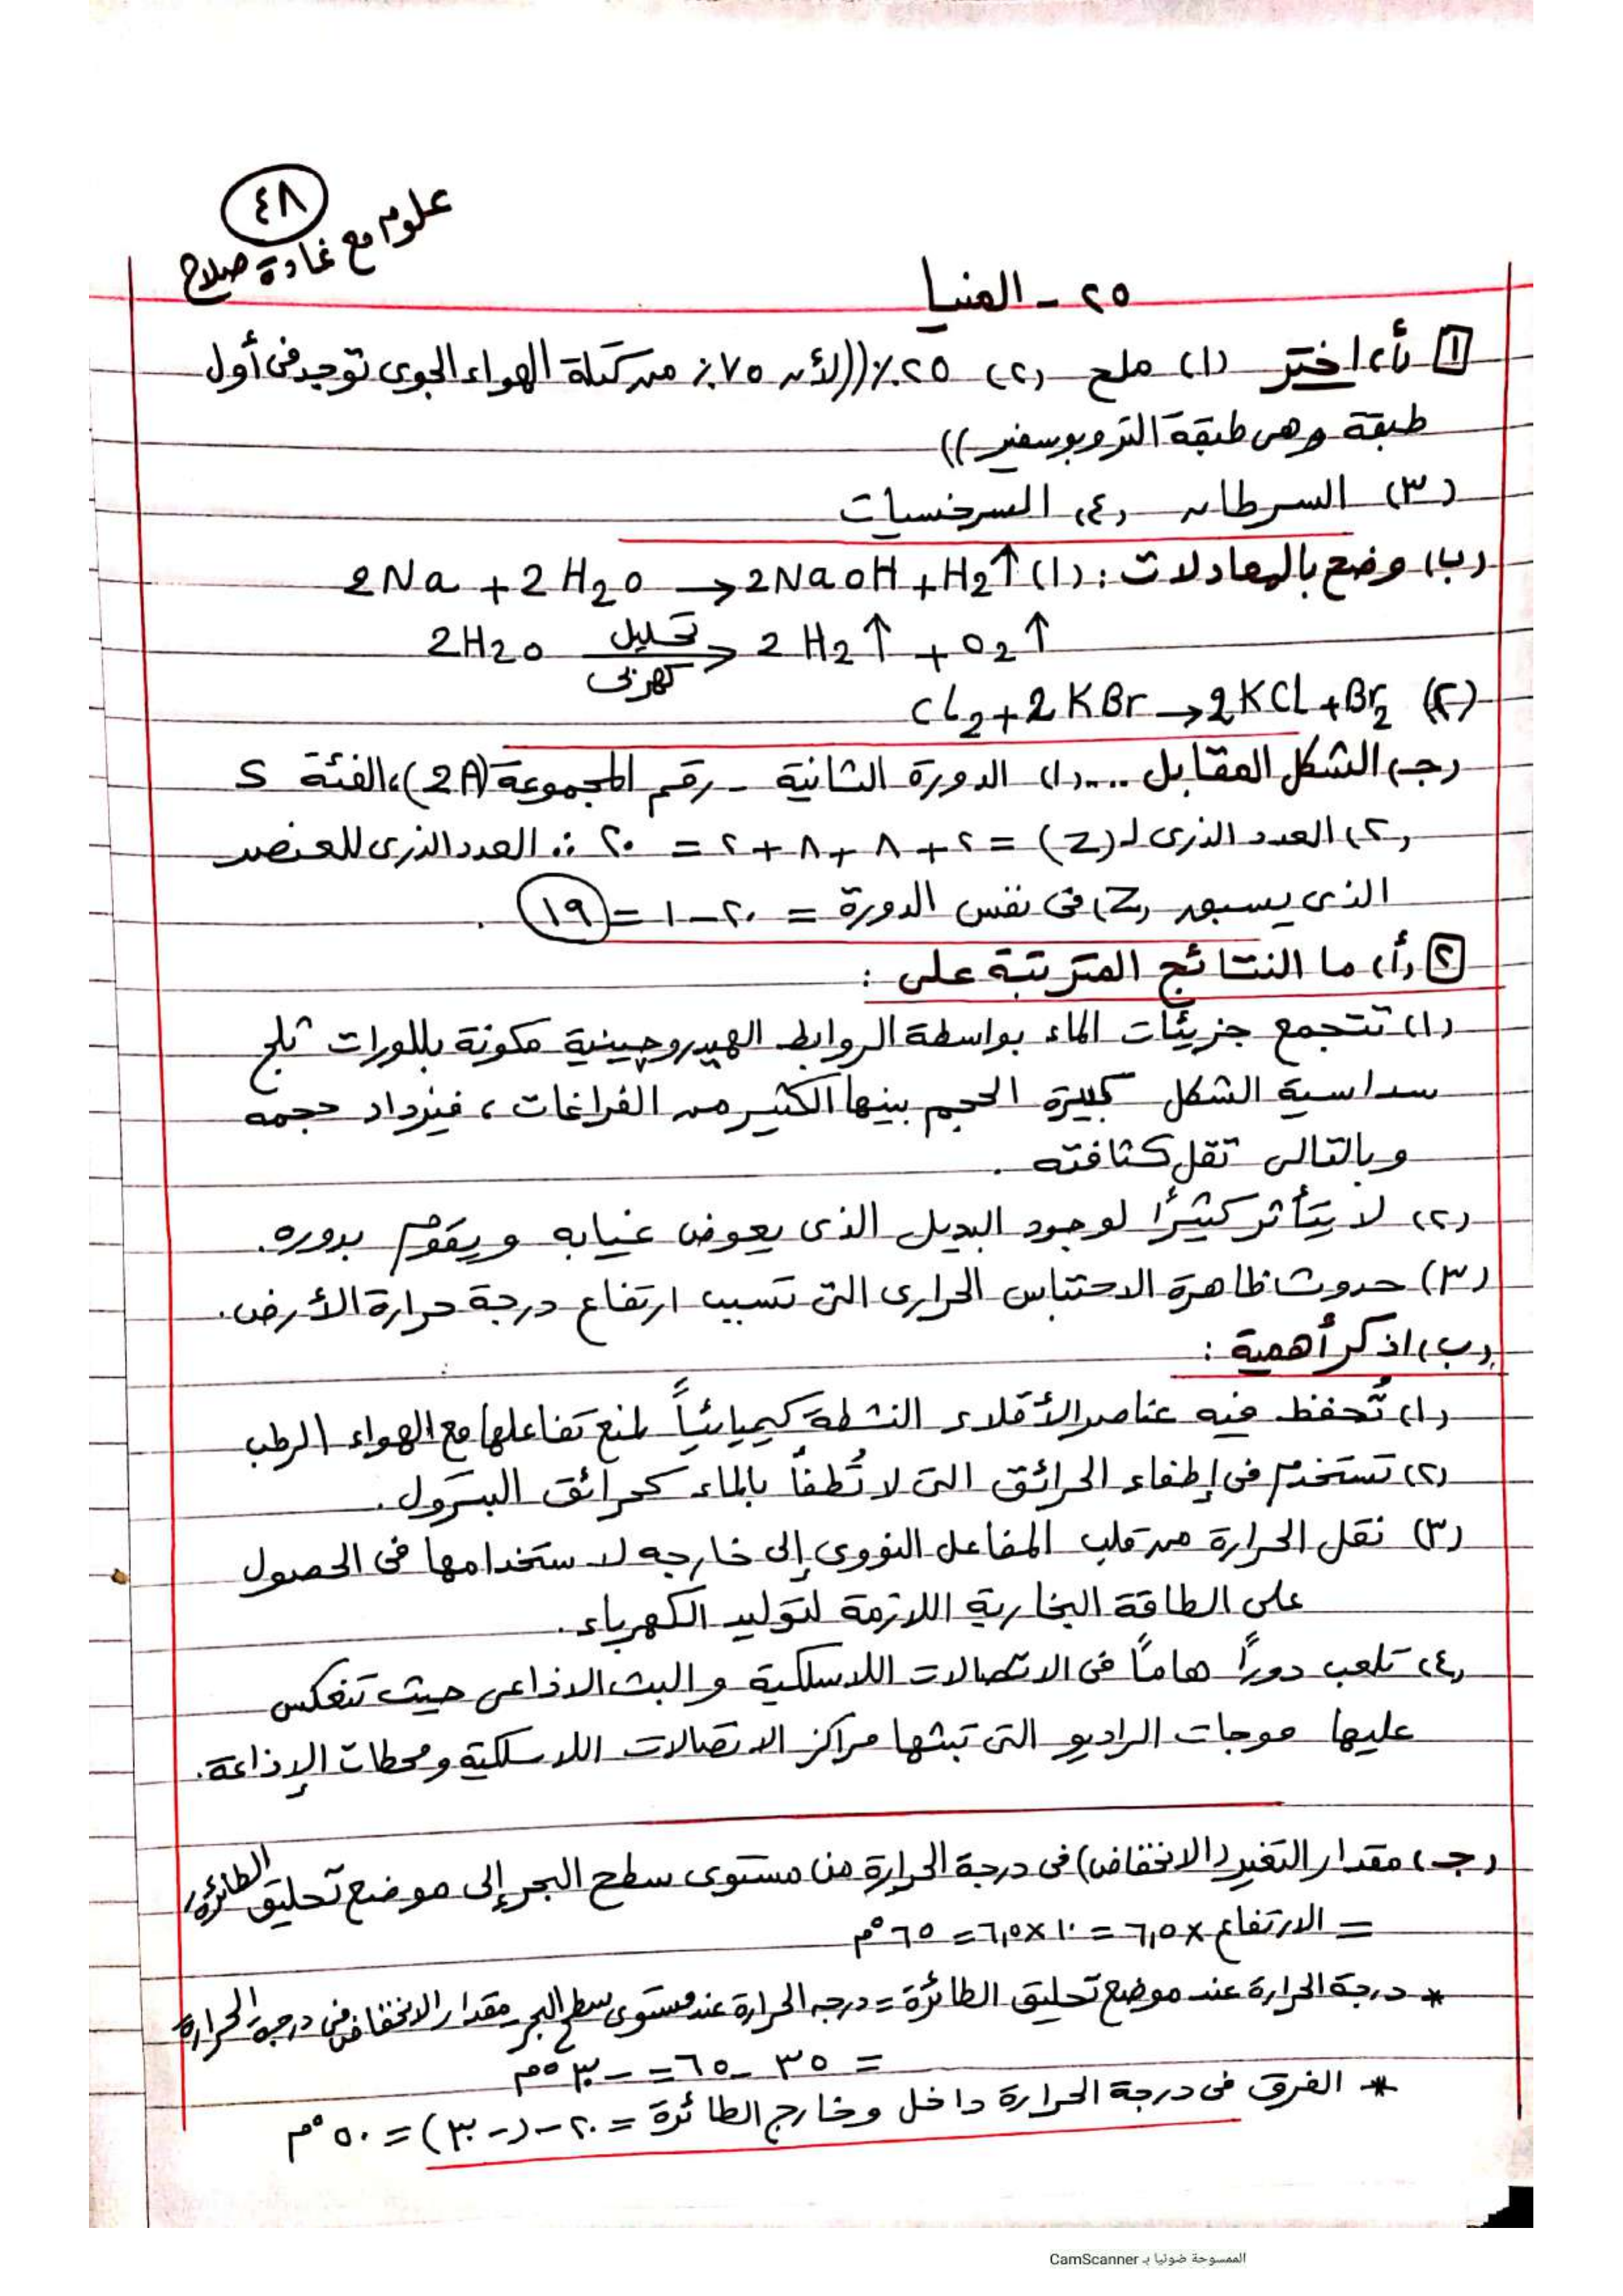 ٤٨
علوم مع غادة صلاح
٢٥ - المنيا
١ (أ) اختر (١) ملح (٢) ٢٥٪ ((لأن ٧٥٪ من كتلة الهواء الجوى توجد فى أول
طبقة وهى طبقة التروبوسفير))
(٣) السرطان (٤) السرخسيات
(ب) وضح بالمعادلات : (١) 2Na + 2H2O → 2NaOH + H2↑
2H2O تحليل كهربى → 2H2↑ + O2↑
(٢) Cl2 + 2KBr → 2KCl + Br2
(جـ) الشكل المقابل .... (١) الدورة الثانية - رقم المجموعة (2A)، الفئة S
(٢) العدد الذرى لـ (Z) = ٢ + ٨ + ٨ + ٢ = ٢٠ ∴ العدد الذرى للعنصر
الذى يسبق (Z) فى نفس الدورة = ٢٠ - ١ = ١٩ .
٢ (أ) ما النتائج المترتبة على :
(١) تتجمع جزيئات الماء بواسطة الروابط الهيدروچينية مكونة بللورات ثلج
سداسية الشكل كبيرة الحجم بينها الكثير من الفراغات ، فيزداد حجمه
وبالتالى تقل كثافته .
(٢) لا يتأثر كثيرًا لوجود البديل الذى يعوض غيابه ويقوم بدوره.
(٣) حدوث ظاهرة الاحتباس الحرارى التى تسبب ارتفاع درجة حرارة الأرض.
(ب) اذكر أهمية :
(١) تُحفظ فيه عناصر الأقلاء النشطة كيميائياً لمنع تفاعلها مع الهواء الرطب
(٢) تستخدم فى إطفاء الحرائق التى لا تُطفأ بالماء كحرائق البترول.
(٣) نقل الحرارة من قلب المفاعل النووى إلى خارجه لاستخدامها فى الحصول
على الطاقة البخارية اللازمة لتوليد الكهرباء.
(٤) تلعب دوراً هاماً فى الاتصالات اللاسلكية والبث الاذاعى حيث تنعكس
عليها موجات الراديو التى تبثها مراكز الاتصالات اللاسلكية ومحطات الإذاعة.
(جـ) مقدار التغير (الانخفاض) فى درجة الحرارة من مستوى سطح البحر إلى موضع تحليق الطائرة
= الارتفاع × ٦,٥ = ١٠ × ٦,٥ = ٦٥ °م
* درجة الحرارة عند موضع تحليق الطائرة = درجه الحرارة عند مستوى سطح البحر - مقدار الانخفاض فى درجة الحرارة
= ٣٥ - ٦٥ = - ٣٠ °م
* الفرق فى درجة الحرارة داخل وخارج الطائرة = ٢٠ - (- ٣٠) = ٥٠ °م
الممسوحة ضوئيا بـ CamScanner